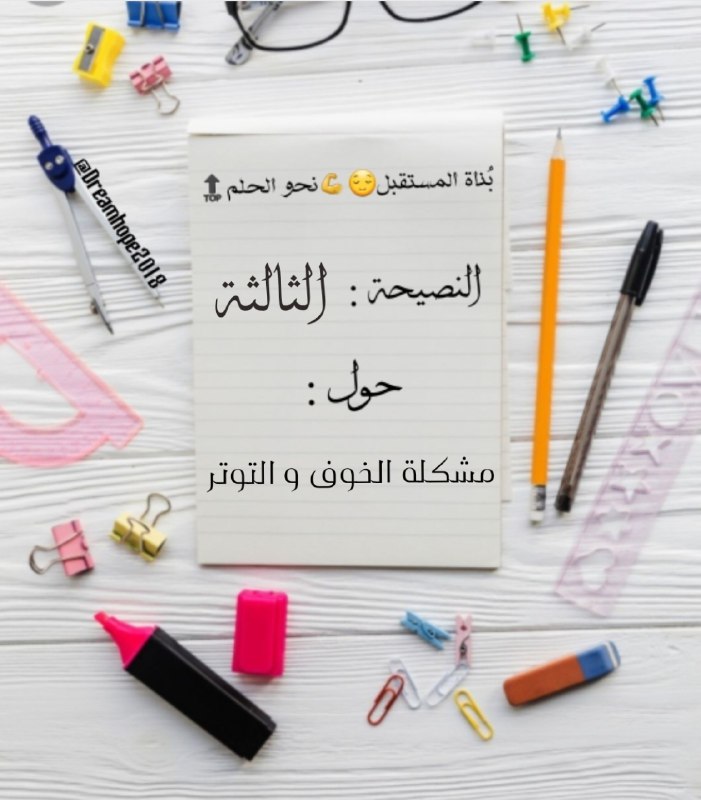 بُناة المستقبل😔💪نحو الحلم🔝
النصيحة : الثالثة
حول :
مشكلة الخوف و التوتر
@Dreamhope2018